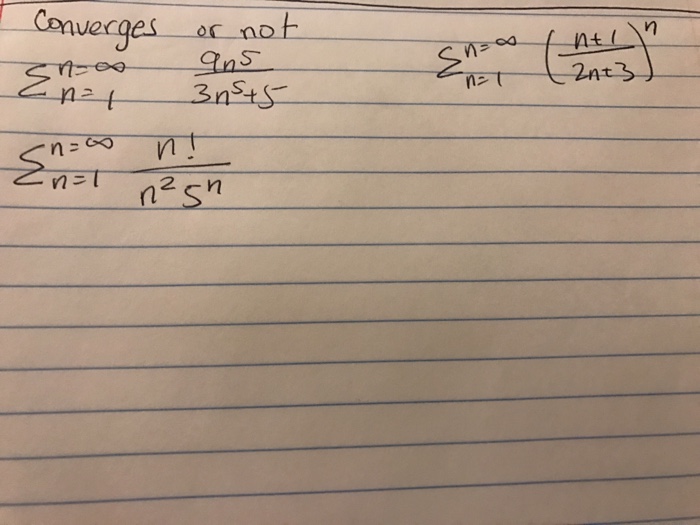 Converges or not
∑ n=∞ n=1 9n5 / 3n5+5
∑ n=∞ n=1 (n+1 / 2n+3)n
∑ n=∞ n=1 n! / n2 5n